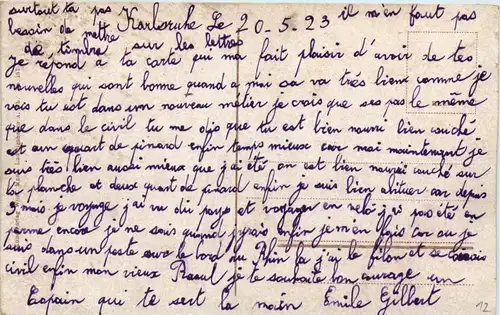 surtout ta pas Karlsruhe Le 20-5.23 il m'en faut pas
besoin de mettre
de timbre sur les lettres
je répond a ta carte qui ma fait plaisir d'avoir de tes
nouvelles qui sont bonne quand a moi sa va très bien comme je
vois tu est dans un nouveau métier je crois que ses pas le même
que dans le civil tu me dis que tu est bien nourri bien couché
et un quart de pinard enfin temps mieux car moi maintenant je
suis très bien aussi mieux que j'ai été on est bien nourri couché sur
la planche et deux quart de pinard enfin je suis bien abituer car depuis
9 mois je voyage j'ai vu du pays et voyager en vélo j'ai pas été en
perme encore je ne sais quand j'irais enfin je m'en fois car ou je
suis dans un poste sur le bord du Rhin la j'ai le filon et se
civil enfin mon vieux Raoul je te souhaite bon courage un
Copain qui te sert la main Emile Gilbert
12